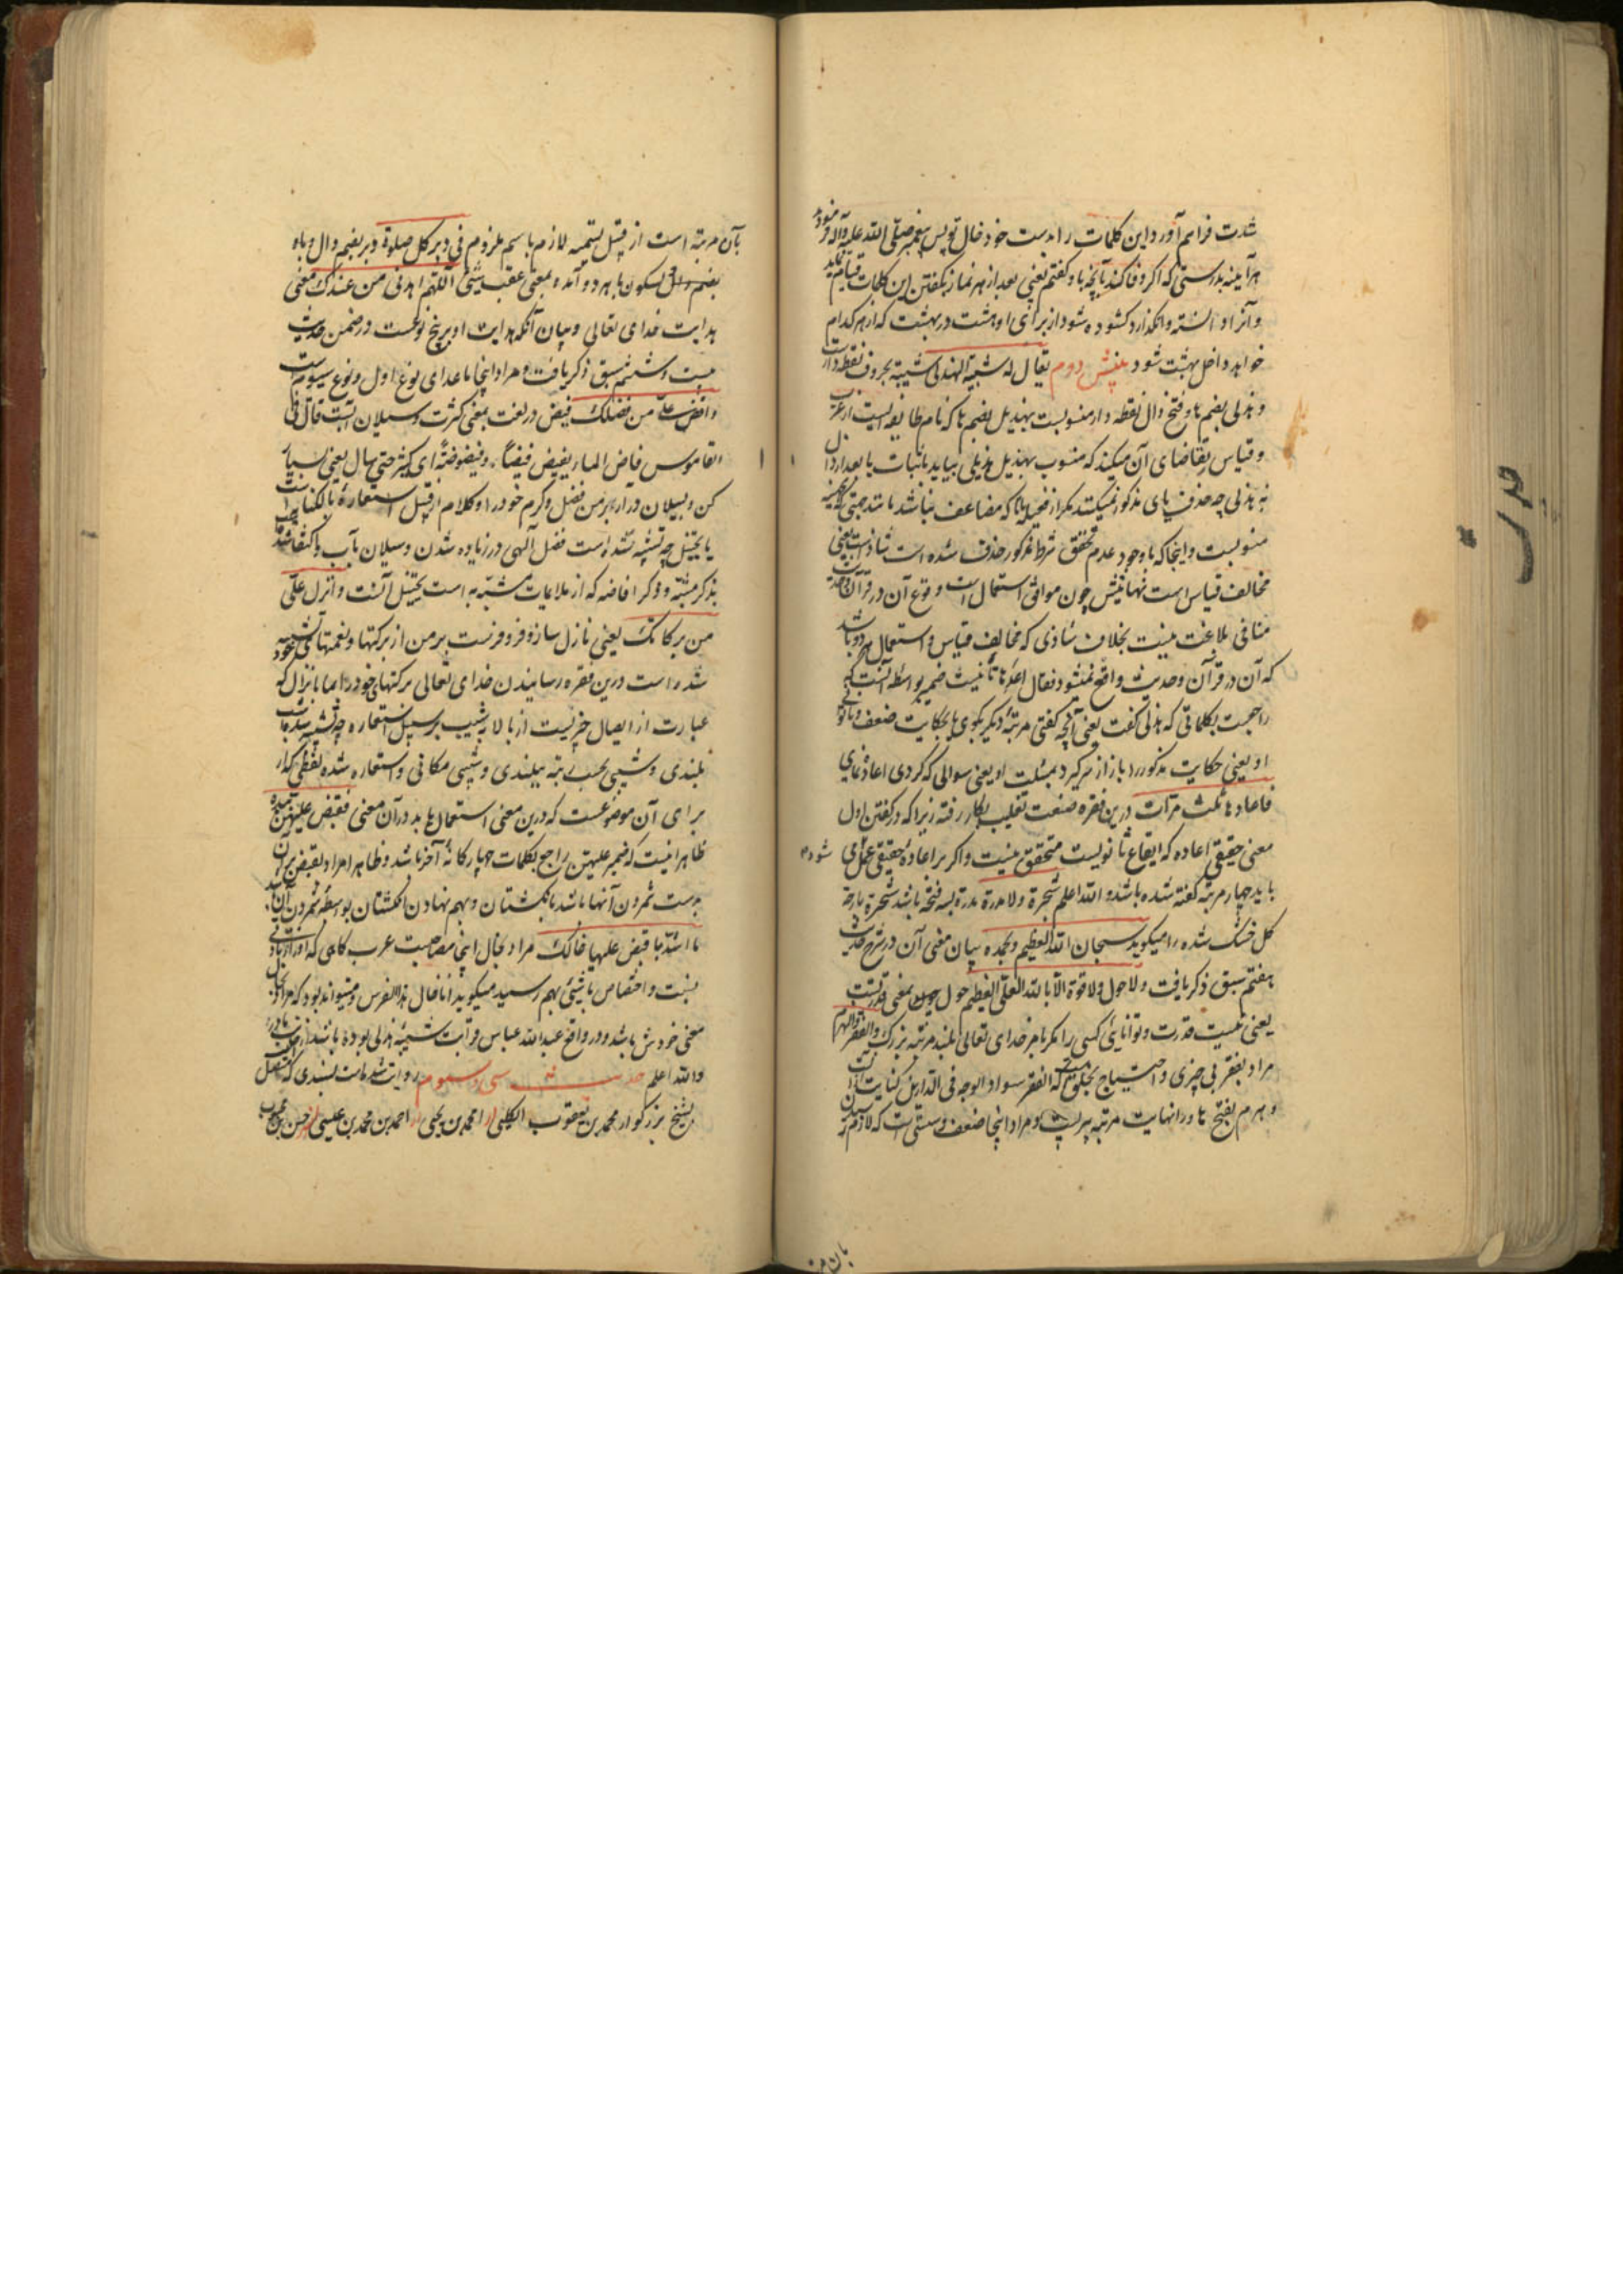 شدت فراهم آورد این کلمات را بدست خود خال تو پس پیغمبر صلی الله علیه وآله فرمود
هر آینه بدرستی که اگر وفا کند بآنچه باو گفتم یعنی بعد از هر نماز بگفتن این کلمات قیام نماید
و آنرا دانسته وانگذارد کشوده شود از برای او هشت در بهشت که از هر کدام
خواهد داخل بهشت شود بینش دوم یقال له شیبة الهذلی شیبة بحروف نقطه دار است
و هذلی بضم ها و فتح ذال نقطه دار منسوبست بهذیل بضم ها که نام طایفه ایست از عرب
و قیاس تقاضای آن میکند که منسوب بهذیل هذیلی بیاید باثبات یا بعد از ذال
نه هذلی چه حذف یای مذکور نمیکنند مگر از فعیله که مضاعف نباشد مانند جهنی که بجهینه
منسوبست و اینجا که با وجود عدم تحقق شرط مذکور حذف شده است شاذست یعنی
مخالف قیاس است نهایتش چون موافق استعمال است وقوع آن در قرآن و حدیث
منافی بلاغت نیست بخلاف شاذی که مخالف قیاس و استعمال هر دو باشد
که آن در قرآن و حدیث واقع نمیشود فقال اعدها تانیث ضمیر بواسطه آنست که
راجعست بکلماتی که هذلی گفت یعنی آنچه گفتی مرتبه دیگر بگوی یا بحکایت ضعف و ناتوانی
او یعنی حکایت مذکور را باز از سر گیر یا بمسئلت او یعنی سوالی که کردی اعاده نمای
فاعادها ثلث مرات درین فقره صنعت تغلیب بکار رفته زیرا که در گفتن اول
معنی حقیقی اعاده که ایقاع ثانویست متحقق نیست و اگر بر اعادهٔ حقیقی حمل شود می
باید چهار مرتبه گفته شده باشد و الله اعلم شجرة ولا مدرة مدرة بسه فتحه باشد شجرة پارچه
گل خشک شده را میگویند سبحان الله العظیم وبحمده بیان معنی آن در شرح حدیث
هفتم سبق ذکر یافت ولا حول ولا قوة الا بالله العلی العظیم حول بمعنی قدرتست
یعنی نیست قدرت و توانایی کسی را مگر بامر خدای تعالی بلند مرتبه بزرگ والفقر والهرم
مراد بفقر بی چیزی و احتیاج بخلق است که الفقر سواد الوجه فی الدارین کنایت از آنست
و هرم بفتح ها و را نهایت مرتبه پیریست و مراد اینجا ضعف و سستی است که لازم رسیدن
بآن مر
بآن مرتبه است از قبیل تسمیه لازم باسم ملزوم فی دبر کل صلوة دبر بضم دال و با و
بضم دال و سکون با هر دو آمده بمعنی عقب شیئ اللهم اهدنی من عندک معنی
هدایت خدای تعالی و بیان آنکه هدایت او بر پنج نوعست در ضمن حدیث
بیست و ششم سبق ذکر یافت و مراد اینجا ماعدای نوع اول و نوع سیوم است
وافض علی من فضلک فیض در لغت بمعنی کثرت و سیلان آبست قال فی
القاموس فاض الماء یفیض فیضا وفیضوضة ای کثر حتی سال یعنی بسیار
کن و بسیلان در آر بر من فضل و کرم خود را و کلام از قبیل استعارهٔ بالکنایت است
یا تخییل چه تشبیه شده است فضل الهی در زیاده شدن و سیلان بآب و اکتفا شده
بذکر مشبه و ذکر افاضه که از ملایمات مشبه به است تخییل آنست وانزل علی
من برکاتک یعنی نازل ساز و فرو فرست بر من از برکتها و نعمتهای خود تشبیه
شده است درین فقره رسانیدن خدای تعالی برکتهای خود را بما بانزال که
عبارت از ایصال چیزیست از بالا بشیب بر سبیل استعاره چه تشبیه شده است
بلندی و شیبی بحسب رتبه ببلندی و شیبی مکانی و استعاره شده لفظی که از
برای آن موضوعست که درین معنی استعمال یابد در آن معنی فقبض علیهن بیده
ظاهر اینست که ضمیر علیهن راجع بکلمات چهارگانهٔ آخر باشد و ظاهرا مراد بقبض بر آن
بدست شمردن آنها باشد بانگشتان و بهم نهادن انگشتان بواسطه شمردن آن
ما اشد ما قبض علیها خالک مراد بخال اینجا مصاحبست عرب گاهی که او را زیادتی
نسبت و اختصاص با شیئی بهم رسید میگوید انا خال هذا الفرس و میتواند بود که مراد بخال
معنی خودش باشد و در واقع عبد الله عباس قرابت شیبه هذلی بوده باشد از جانب مادر
والله اعلم حدیث سی و سیوم روایت شده است بسندی که متصل است
بشیخ بزرگوار محمد بن یعقوب الکلینی از محمد بن یحیی از احمد بن محمد بن عیسی از حسن بن محبوب